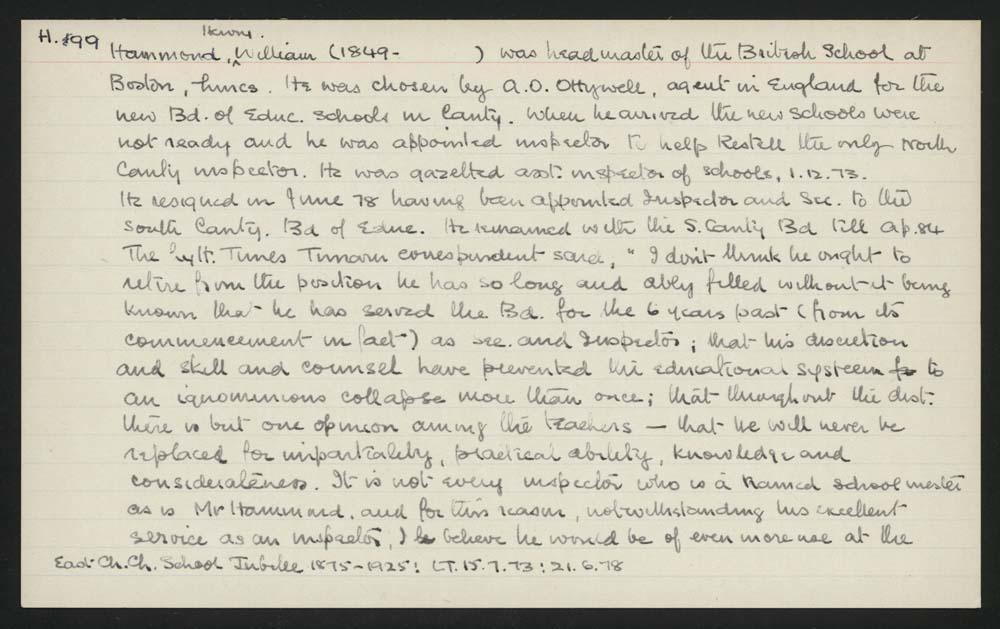 H.199
Hammond, William (1849- ) was headmaster of the British School at
Boston, Lincs. He was chosen by A.O. Ottywell, agent in England for the
new Bd. of Educ. schools in Canty. When he arrived the new schools were
not ready and he was appointed inspector to help Restell the only North
Canty inspector. He was gazetted asst: inspector of schools, 1.12.73.
He resigned in June 78 having been appointed Inspector and Sec. to the
South Canty. Bd of Educ. He remained with the S. Canty Bd till Ap. 84
The Lytt. Times Timaru correspondent said, " I don't think he ought to
retire from the position he has so long and ably filled without it being
known that he has served the Bd. for the 6 years past (from its
commencement in fact) as sec. and Inspector; that his discretion
and skill and counsel have prevented the educational system to
an ignominious collapse more than once; that throughout the dist.
there is but one opinion among the teachers — that he will never be
replaced for impartiality, practical ability, knowledge and
considerateness. It is not every inspector who is a trained school master
as is Mr Hammond. and for this reason, notwithstanding his excellent
service as an inspector, I believe he would be of even more use at the
East Ch. Ch. School Jubilee 1875-1925: LT. 15.7.73: 21.6.78